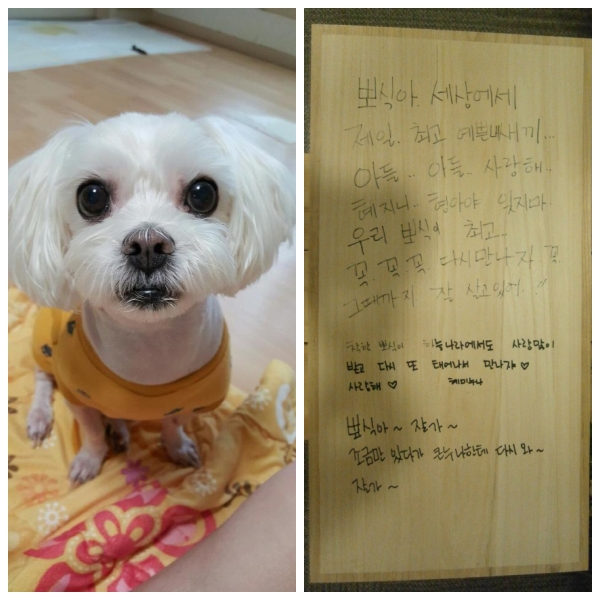 뽀식아. 세상에서
제일. 최고 예쁜내새끼...
아들.. 아들. 사랑해..
혜지니.. 형아야 잊지마.
우리 뽀식이 최고..
꼭. 꼭. 꼭 다시만나자 꼭
그때까지 잘 살고있어.
착한 뽀식이 하늘나라에서도 사랑많이
받고 다시 또 태어나서 만나자♡
사랑해♡ 혜미누나
뽀식아~ 잘가~
조금만 있다가 큰누나한테 다시 와~
잘가~